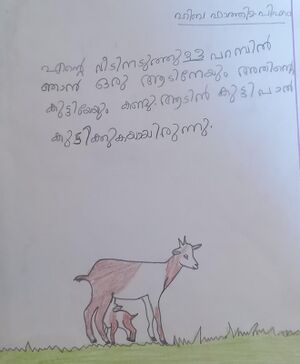 ഹിബ ഫാത്തിമ.പി.ഹാ
എന്റെ വീടിനടുത്തുള്ള പറമ്പിൽ
ഞാൻ ഒരു ആടിനേയും അതിന്റെ
കുട്ടിയേയും കണ്ടു. ആടിൻ കുട്ടി പാൽ
കുടിക്കുകയായിരുന്നു.